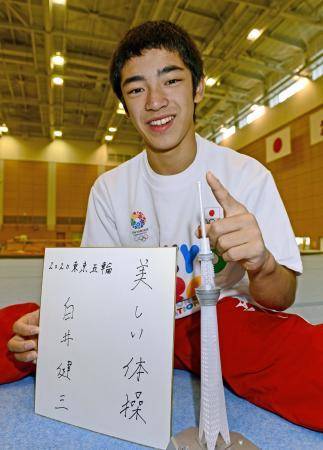 2020東京五輪
美しい体操
白井健三